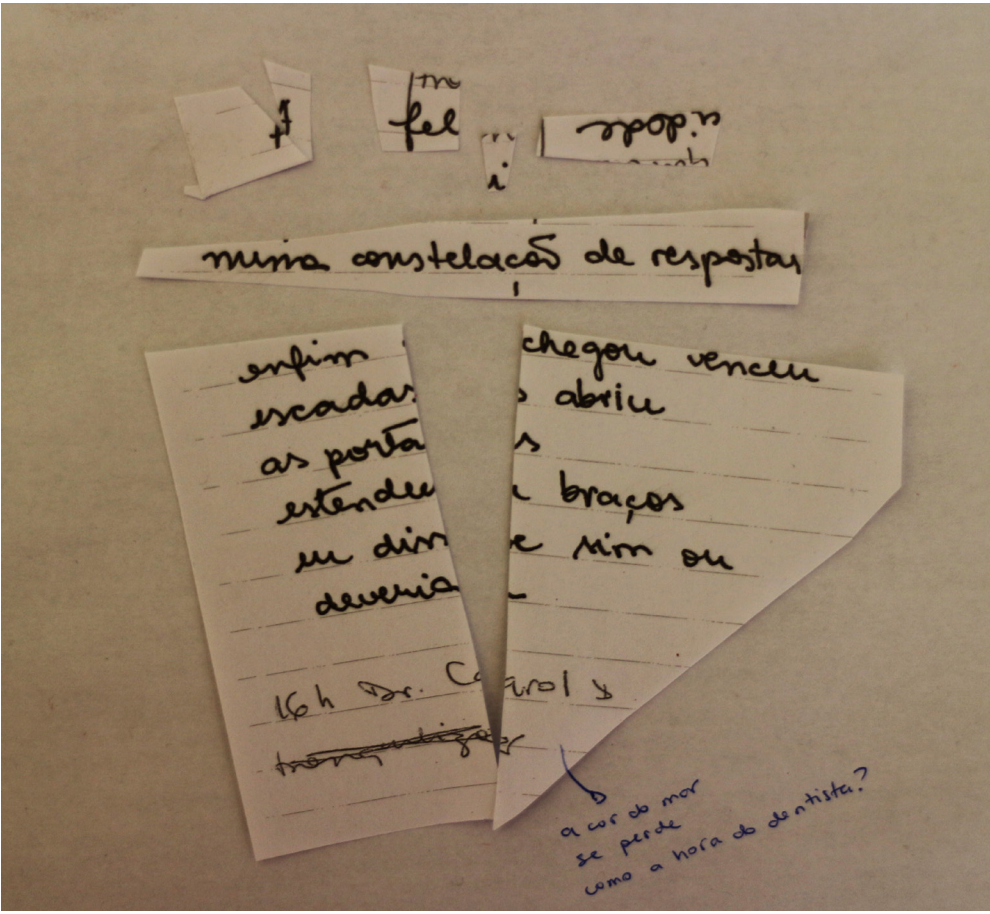 fel
i
cidade
numa constelação de respostas
enfim chegou venceu
escadas abriu
as portas
estendeu braços
eu disse sim ou
deveria
16h Dr. Carol
a cor do mar
se perde
como a hora do dentista?